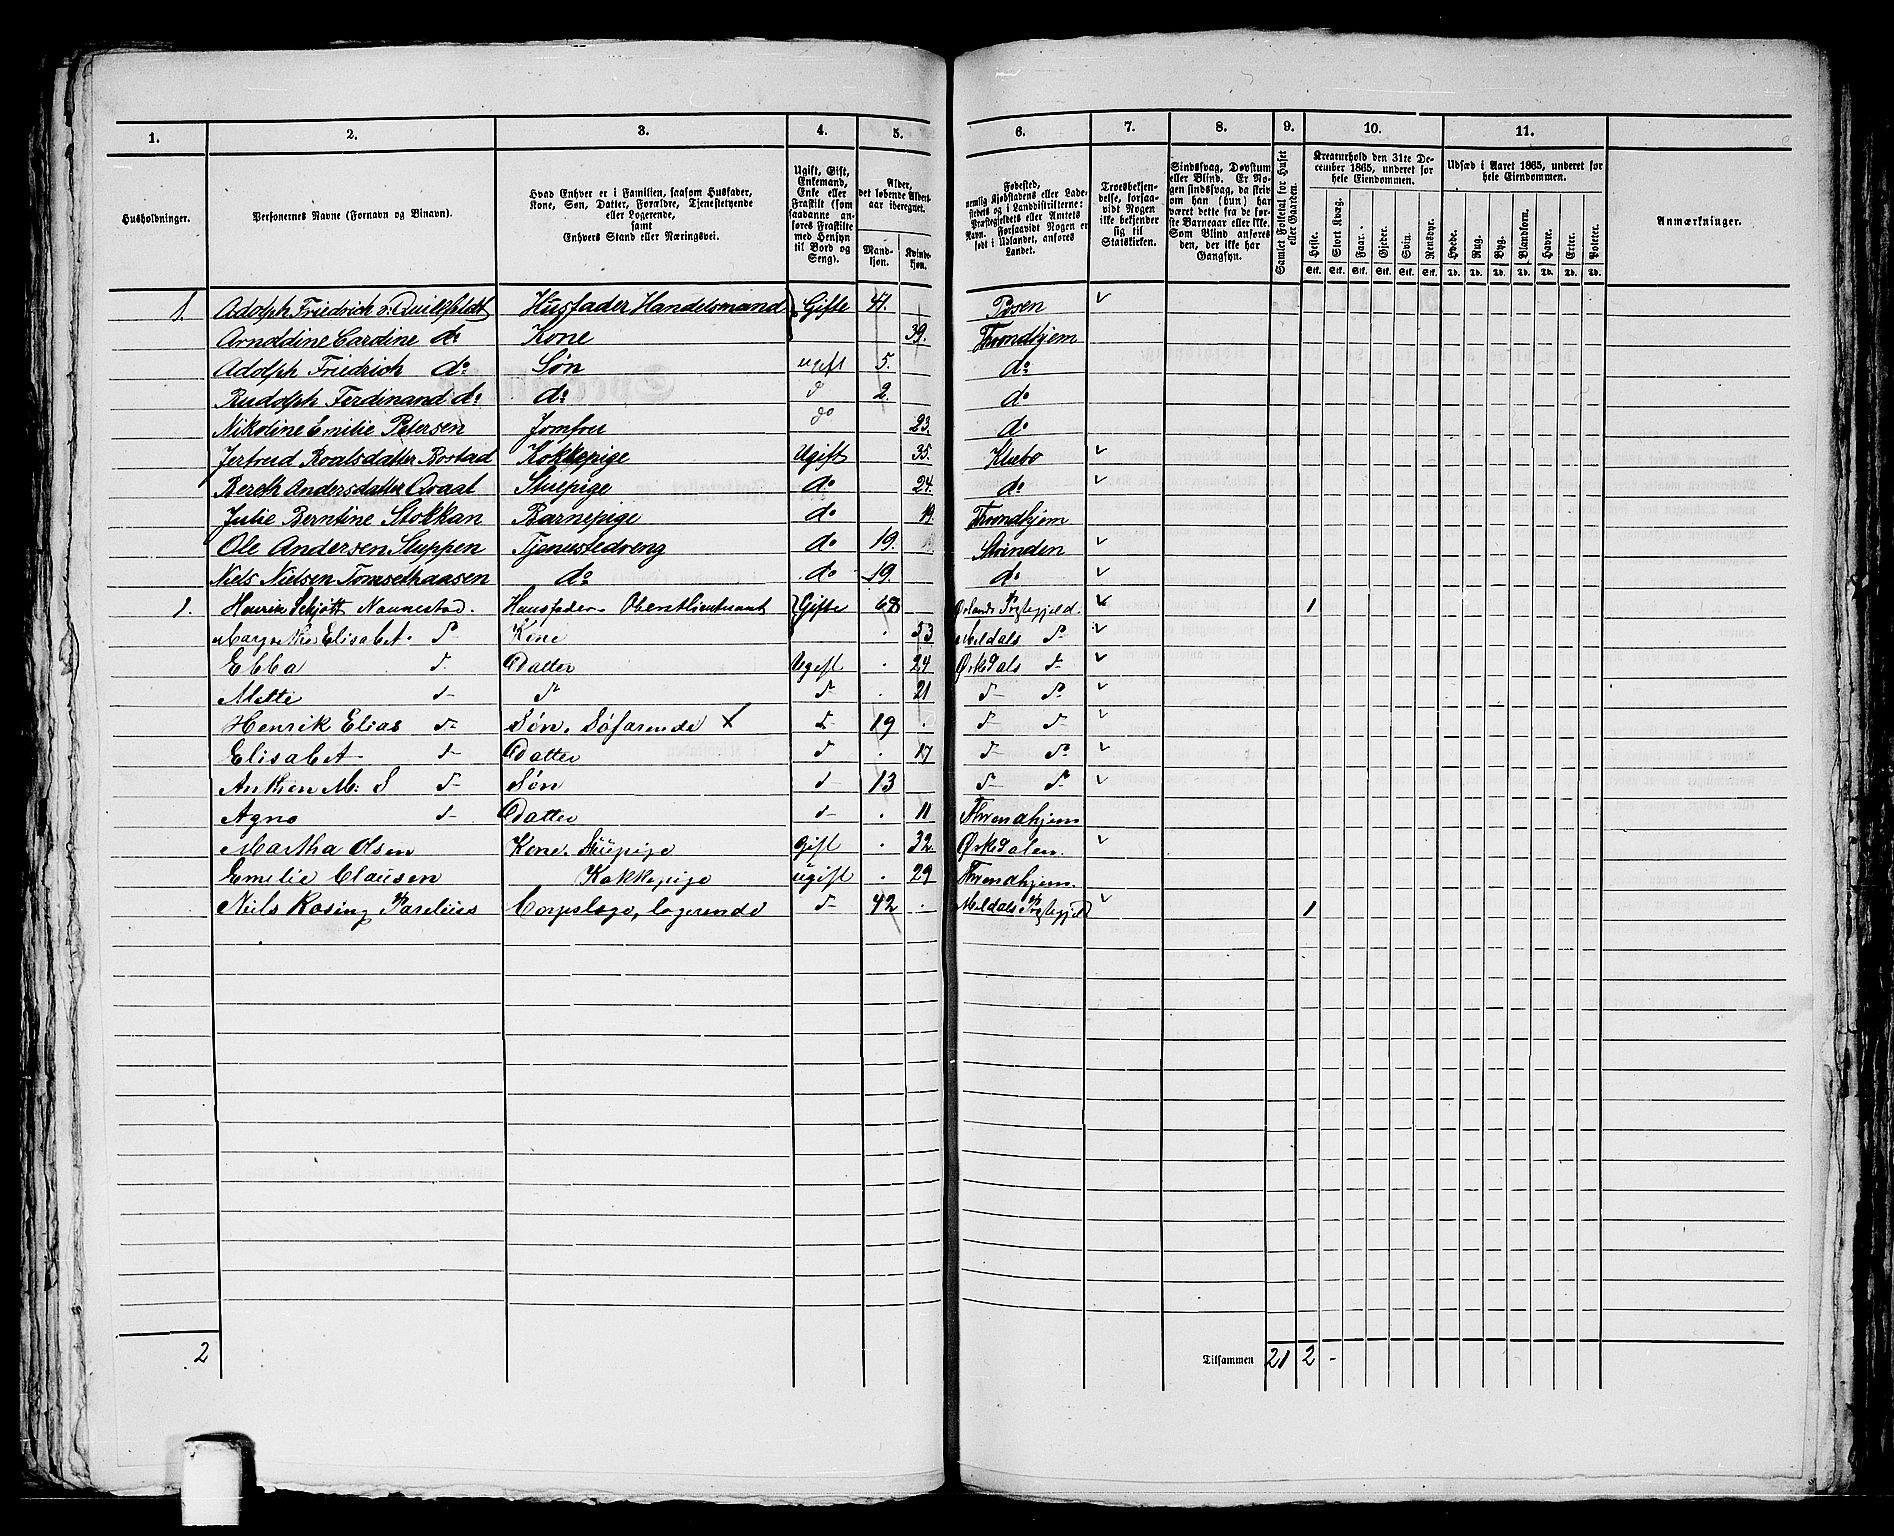 1. 2. 3. 4. 5. 6. 7. 8. 9. 10. 11.
Husholdninger.
Personernes Navne (Fornavn og Binavn).
Hvad Enhver er i Familien, saasom Husfader,
Kone, Søn, Datter, Forældre, Tjenestetyende
eller Logerende,
samt
Enhvers Stand eller Næringsvei.
Ugift, Gift,
Enkemand,
Enke eller
Fraskilt (som
saadanne an-
føres Fraskilte
med Hensyn
til Bord og
Seng).
Alder,
det løbende Alders-
aar iberegnet.
Mand-
kjøn.
Kvinde-
kjøn.
Fødested,
nemlig Kjøbstadens eller Lade-
stedets og i Landdistrikterne:
Præstegjeldets eller Amtets
Navn. Forsaavidt Nogen er
født i Udlandet, anføres
Landet.
Troesbekjen-
delse, forsaa-
vidt Nogen
ikke bekjender
sig til
Statskirken.
Sindssvag, Døvstum
eller Blind. Er No-
gen sindssvag, da skriv
om han (hun) har
været dette fra de før-
ste Barneaar eller ikke.
Som Blind anføres
den, der ikke har
Gangsyn.
Samlet Folketal for Huset
eller Gaarden.
Kreaturhold den 31te De-
cember 1865, underet for
hele Eiendommen.
Heste. Stort Kvæg. Faar. Gjeder. Svin. Rensdyr.
Stk. Stk. Stk. Stk. Stk. Stk.
Udsæd i Aaret 1865, underet for
hele Eiendommen.
Hvede. Rug. Byg. Blandkorn. Havre. Erter. Poteter.
Td. Td. Td. Td. Td. Td. Td.
Anmærkninger.
1. Adolph Friedrich v: Quilfeldt Husfader Handelsmand Gifte 41. Posen
Arnoldine Cardine do Kone 39. Throndhjem
Adolph Friedrich do Søn ugift 5. do
Rudolph Ferdinand do do d 2. do
Nikoline Emilie Petersen Jomfru do 23. do
Jertrud Roalsdatter Rostad Kokkepige Ugift 35. Klæbo
Bereth Andersdatter Qvaal Stuepige do 24. do
Julie Berntine Stokkan Barnepige do 19. Throndhjem
Ole Andersen Sluppen Tjenestedreng do 19. Strinden
Niels Nielsen Tomsethaasen do do 19. do
1. Henrik Schjøtt Nannestad. Huusfader Oberstlieutnant Gifte 68 Ørlands Prstegjeld. 1
Elisabet. do Kone 53 Meldals do
Ebba d- Datter Ugift 24 Ørkedals d-
Mette d- do d- 21 d- do
Henrik Elias d- Søn. Søfarende X d- 19 d- do
Elisabet d- Datter d- 17 d- do
Anthon M: S d- Søn d- 13 d- do
Agnes d- Datter d- 11 Throndhjem
Martha Olsen Kone. Stuepige Gift 32 Ørkedalen.
Emelie Clausen Kokkepige ugift 29 Throndhjem.
Niels Rosing Parelius Corpslæge, logerende d- 42 Meldals Prstegjeld 1
2
Tilsammen 21 2 -